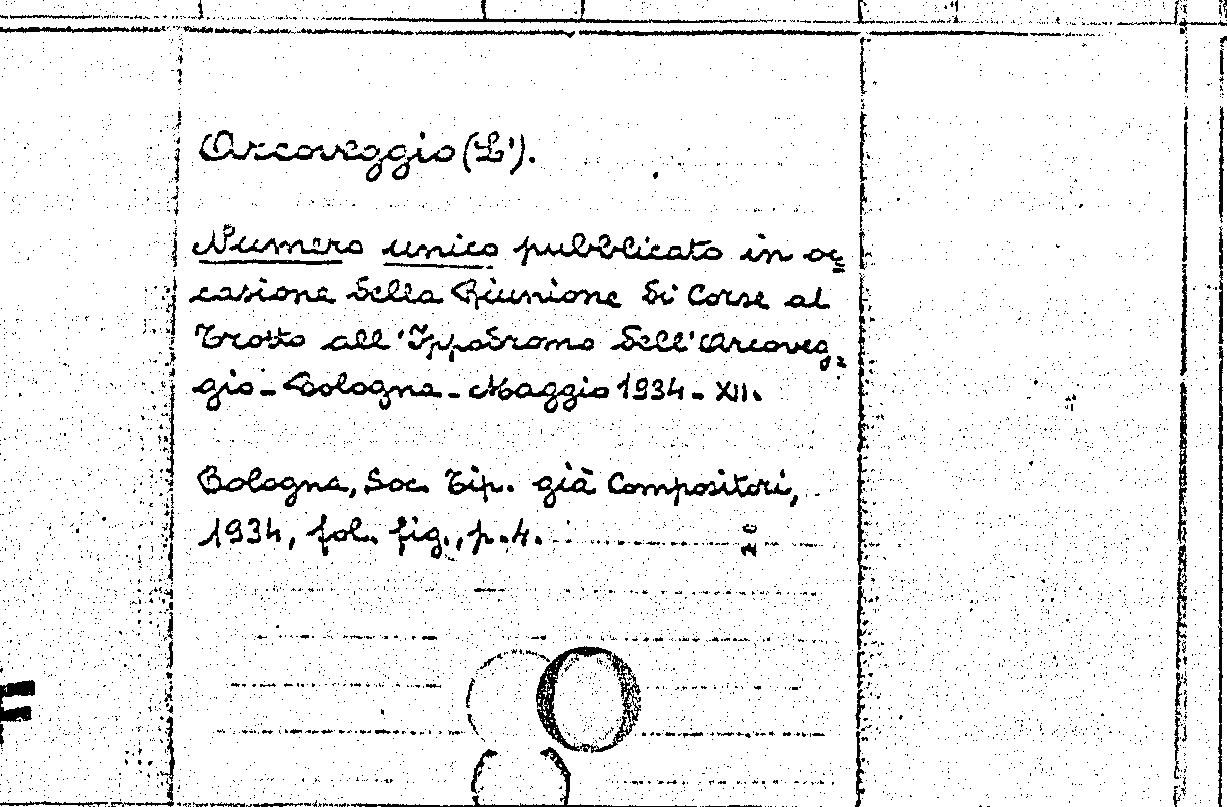 Arcoveggio (L').
Numero unico pubblicato in oc=
casione della Riunione di Corse al
Trotto all'Ippodromo dell'Arcoveg=
gio - Bologna - Maggio 1934 - XII.
Bologna, Soc. Tip. già Compositori,
1934, fol. fig., p. 4.